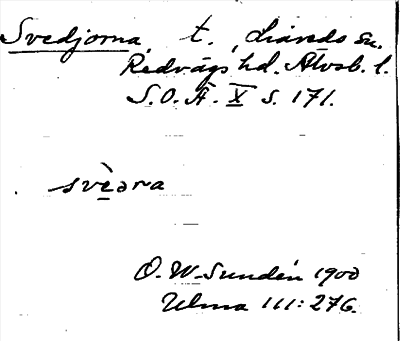 Svedjorna, t., Liareds sn.
Redvägs hd. Älvsb. l.
S.O.Ä. X s. 171.
svèəra
O. W. Sundén 1900
Ulma 111:276.